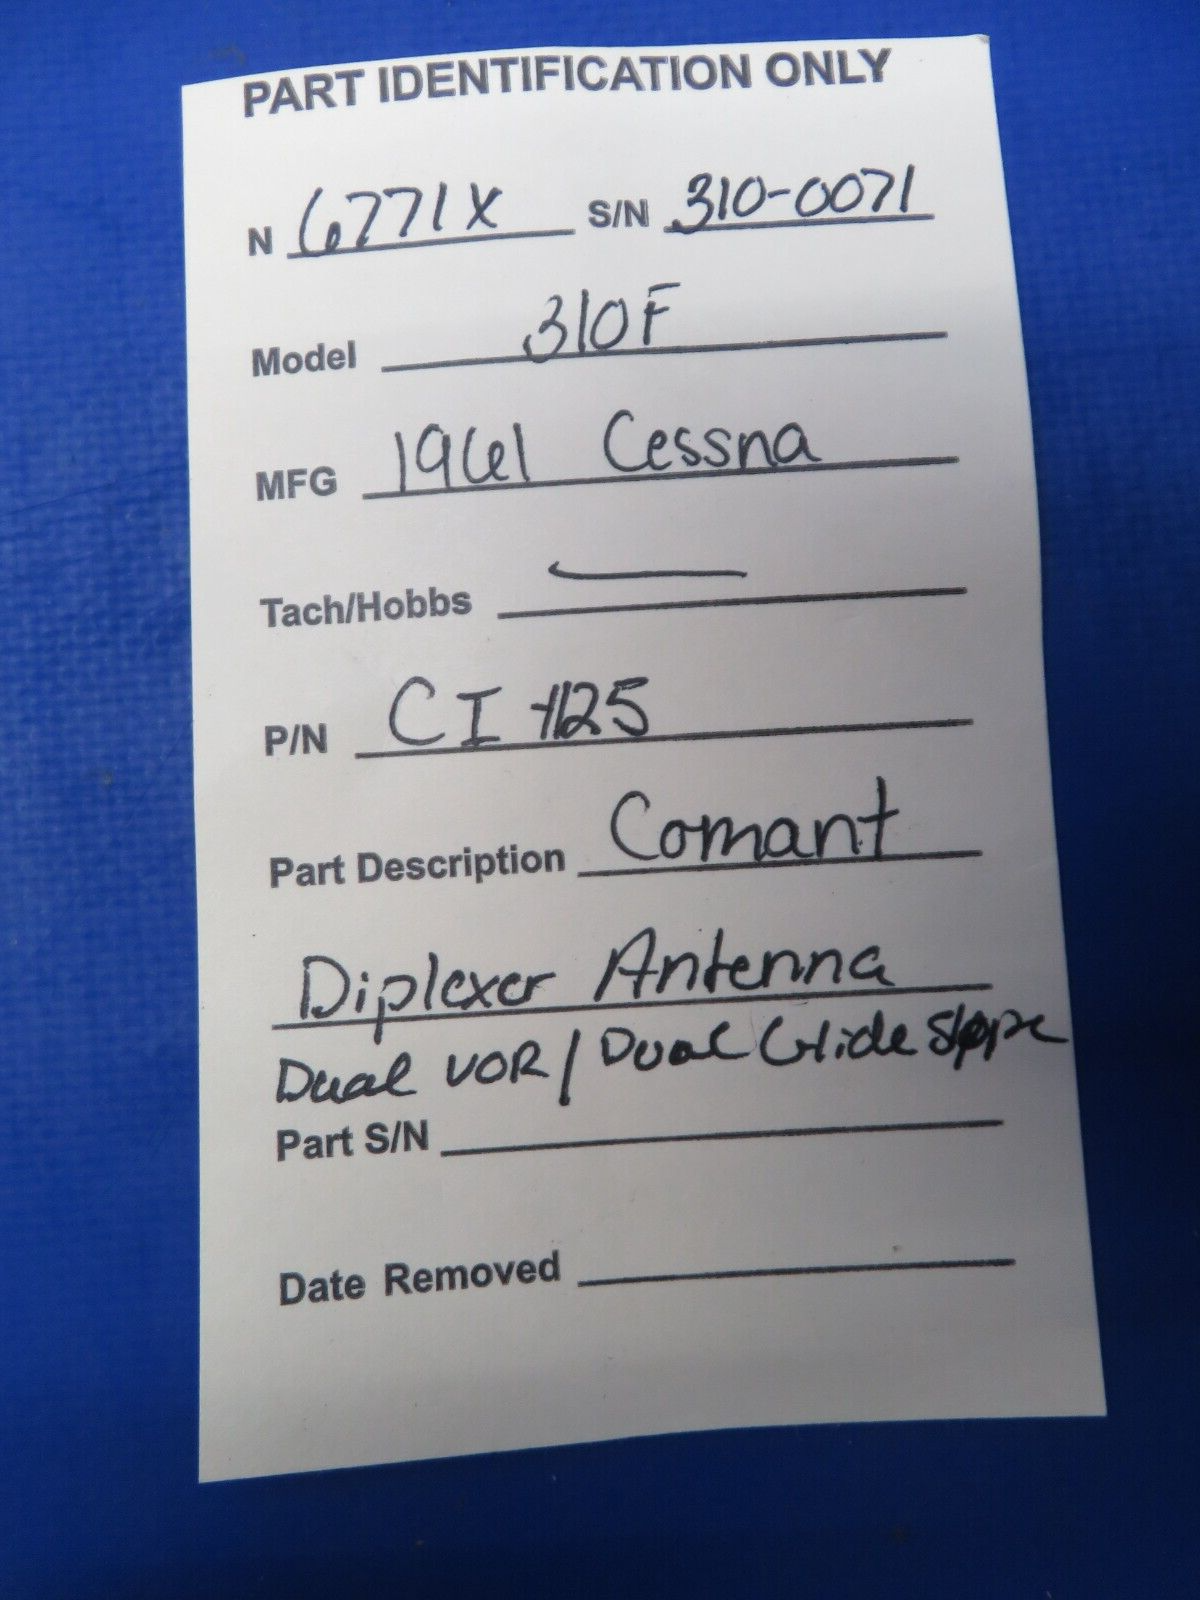 PART IDENTIFICATION ONLY
N 6771X S/N 310-0071
Model 310F
MFG 1961 Cessna
Tach/Hobbs —
P/N CI 1125
Part Description Comant
Diplexer Antenna
Dual VOR / Dual Glide Slope
Part S/N
Date Removed